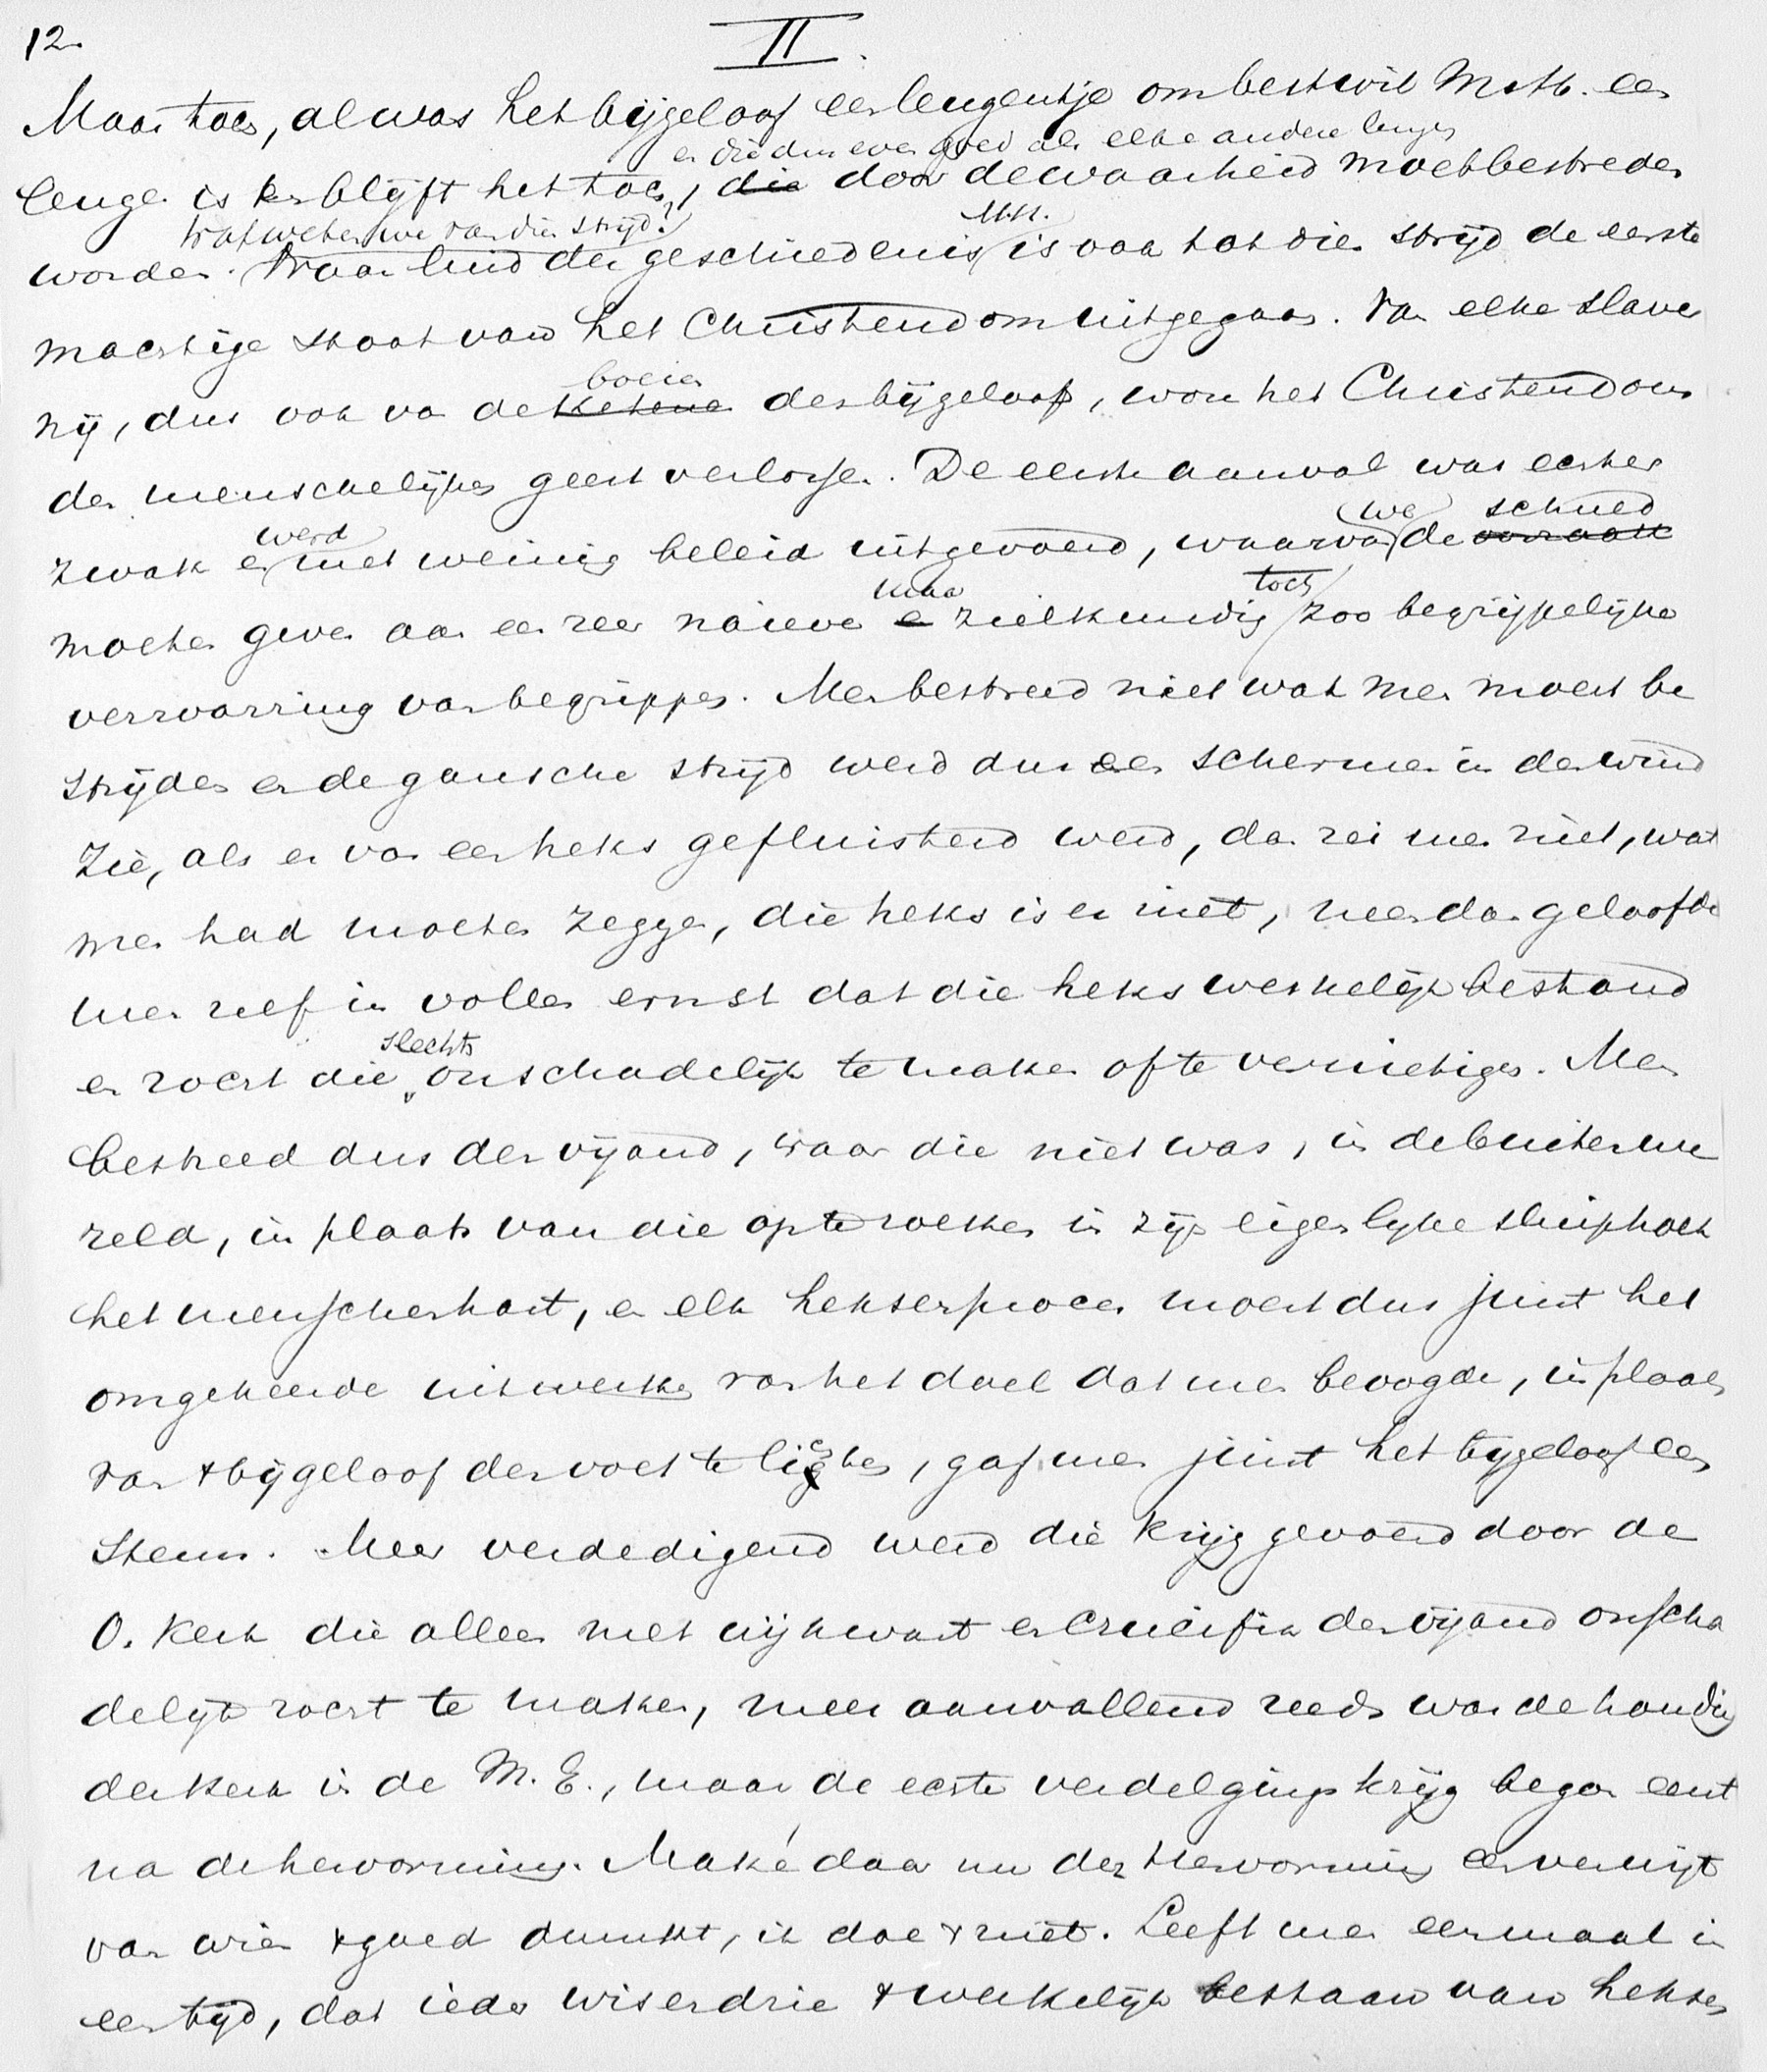 12.
II.
Maar toch, al was het bijgeloof een leugentje om bestwil M.H. een
en die dus even goed als elke andere leugen
leugen is en blijft het toch, die door de waarheid moet bestreden
Wat weten we van die strijd? M.H.
worden. Naar luid der geschiedenis is ook tot dien strijd de eerste
machtige stoot van het Christendom uitgegaan. Van elke slaver
boeien
nij, dus ook van de ketenen des bijgeloofs, wou het Christendom
den menschelijken geest verlossen. De eerste aanval was echter
werd we schuld
zwak en met weinig beleid uitgevoerd, waarvan de oorzaak
maar toch
moeten geven aan een zeer naieve en zielkundig zoo begrijpelijke
verwarring van begrippen. Men bestreed niet wat men moest be
strijden en de gansche strijd werd dus een schermen in den wind
Zie, als er van een heks gefluisterd werd, dan zei men niet, wat
men had moeten zeggen, die heks is er niet, neen dan geloofde
men zelf in vollen ernst dat die heks werkelijk bestond
slechts
en zocht die onschadelijk te maken of te vernietigen. Men
bestreed dus den vijand, waar die niet was, in de buitenwe
reld, in plaats van die op te zoeken in zijn eigenlijke sluiphoek
het menschenhart, en elk heksenproces moest dus juist het
omgekeerde uitwerken van het doel dat men beoogde, in plaats
van 't bijgeloof den voet te lichten, gaf men juist het bijgeloof een
steun. Meer verdedigend werd die krijg gevoerd door de
O. Kerk die alleen met wijkwast en crucifix den vijand onscha
delijk zocht te maken, meer aanvallend reeds was de houding
der Kerk in de M.E., maar de echte verdelgingskrijg began eerst
na de hervorming. Make daar nu der Hervorming een verwijt
van wien 't goed dunkt, ik doe 't niet. Leeft men eenmaal in
een tijd, dat ieder wis en drie 't werkelijk bestaan van heksen